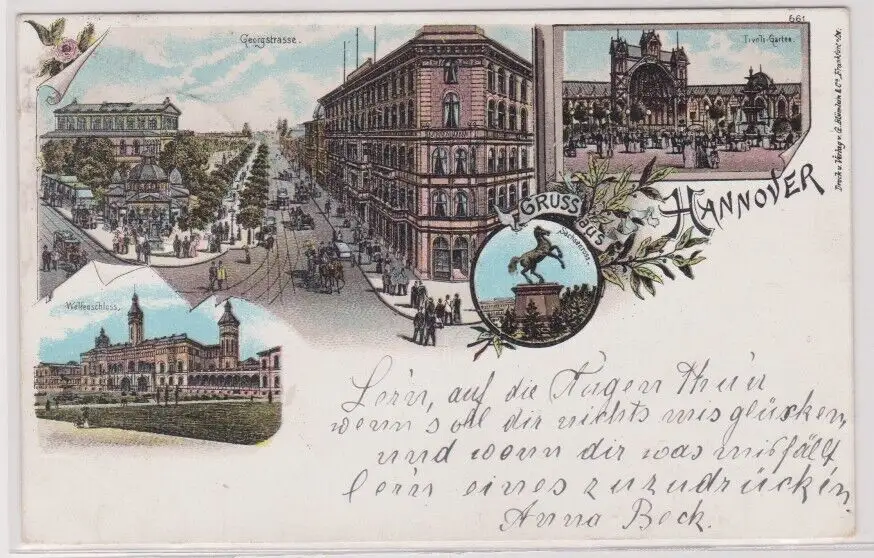 661
Georgstrasse.
Tivoli-Garten.
GRUSS
aus
HANNOVER
Sachsenross.
Welfenschloss.
Lern, auf die Augen Thün
wenn soll dir nichts misglücken,
und wenn dir was misfällt
lern eines zuzudrücken
Anna Beck.
Druck u. Verlag v. & Co., Frankfurt